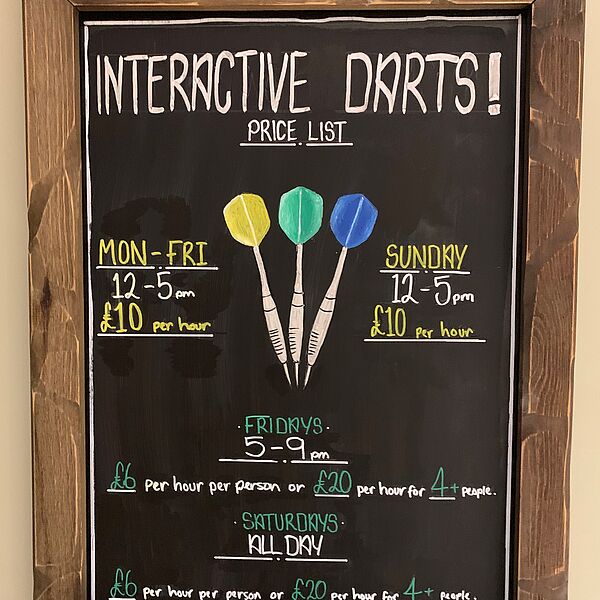 INTERACTIVE DARTS!
PRICE LIST
MON-FRI
12-5pm
£10 per hour
SUNDAY
12-5pm
£10 per hour
·FRIDAYS·
5-9pm
£6 per hour per person or £20 per hour for 4+ people.
·SATURDAYS·
ALL DAY
£6 per hour per person or £20 per hour for 4+ people.